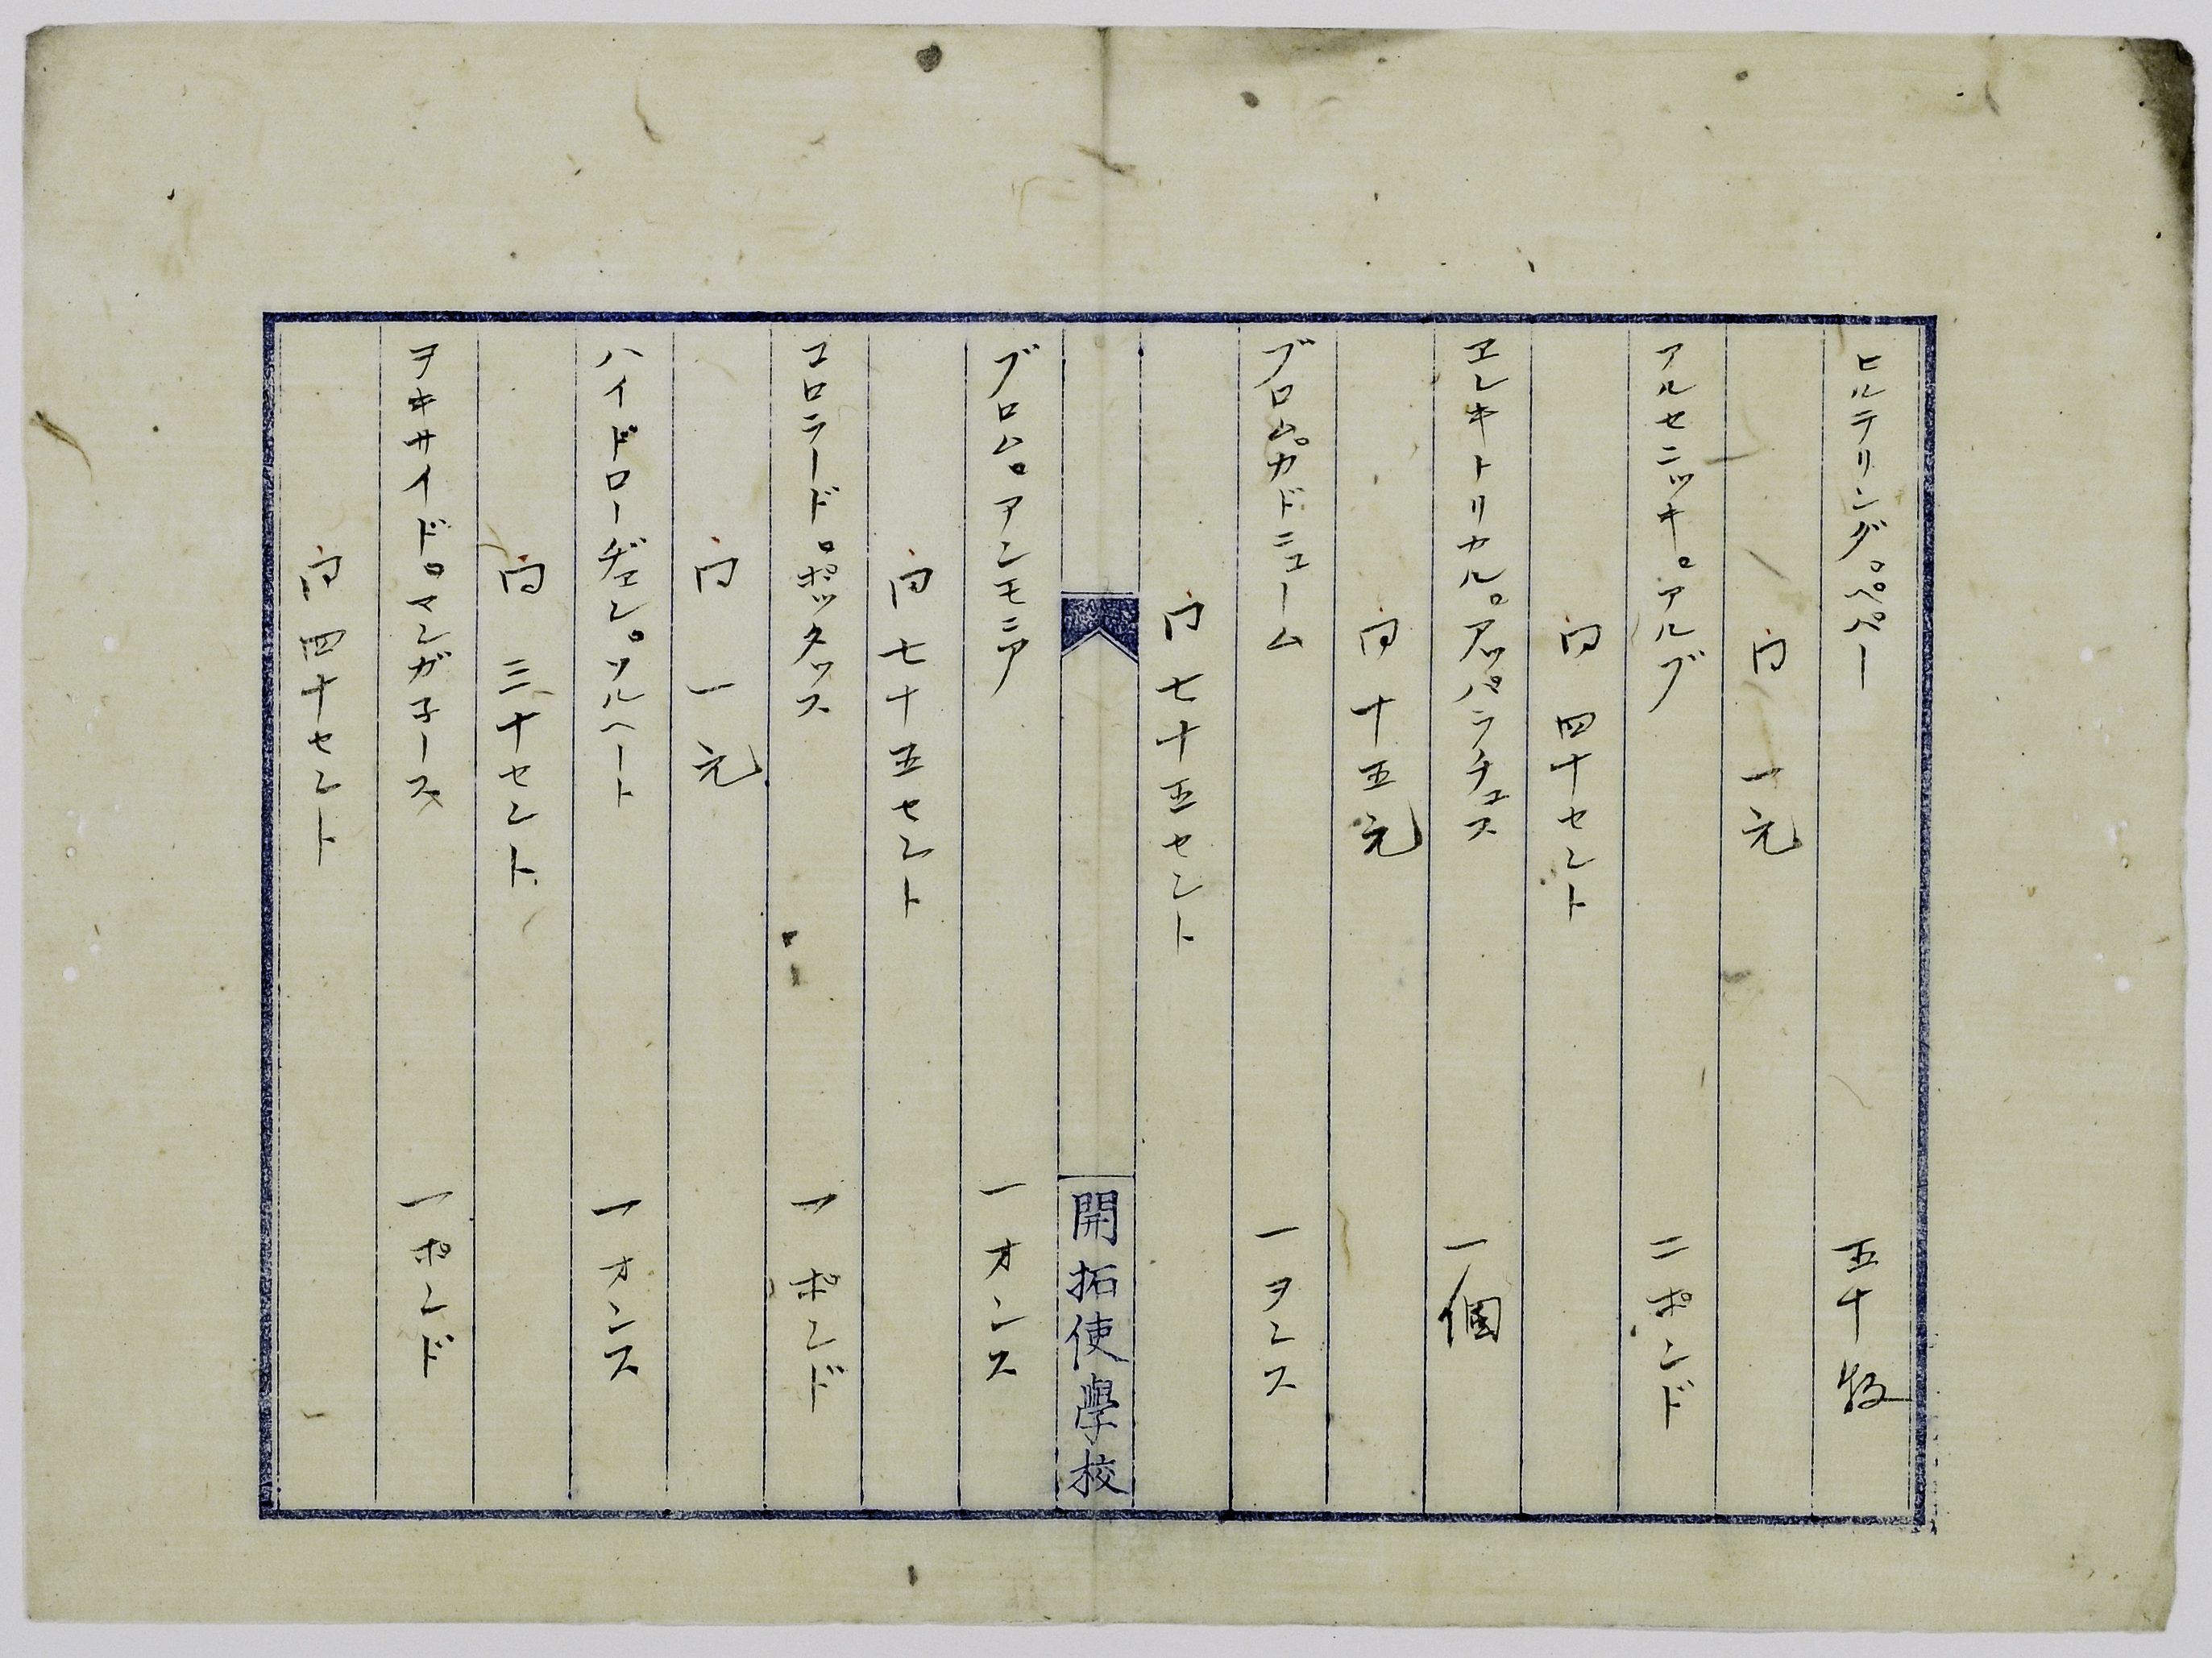 ヒルテリング。ペペー 五十枚
同 一元
アルセニッキ。アルブ 二ポンド
同 四十セント
エレキトリカル。アッパラチュス 一個
同 十五元
ブロム。カドニューム 一ヲンス
同 七十五セント
開拓使學校
ブロム。アンモニア 一オンス
同 七十五セント
コロラード。ポッタッス 一ポンド
同 一元
ハイドローヂエン。ソルヘート 一オンス
同 三十セント
ヲキサイド。マンガ子ース 一ポンド
同 四十セント